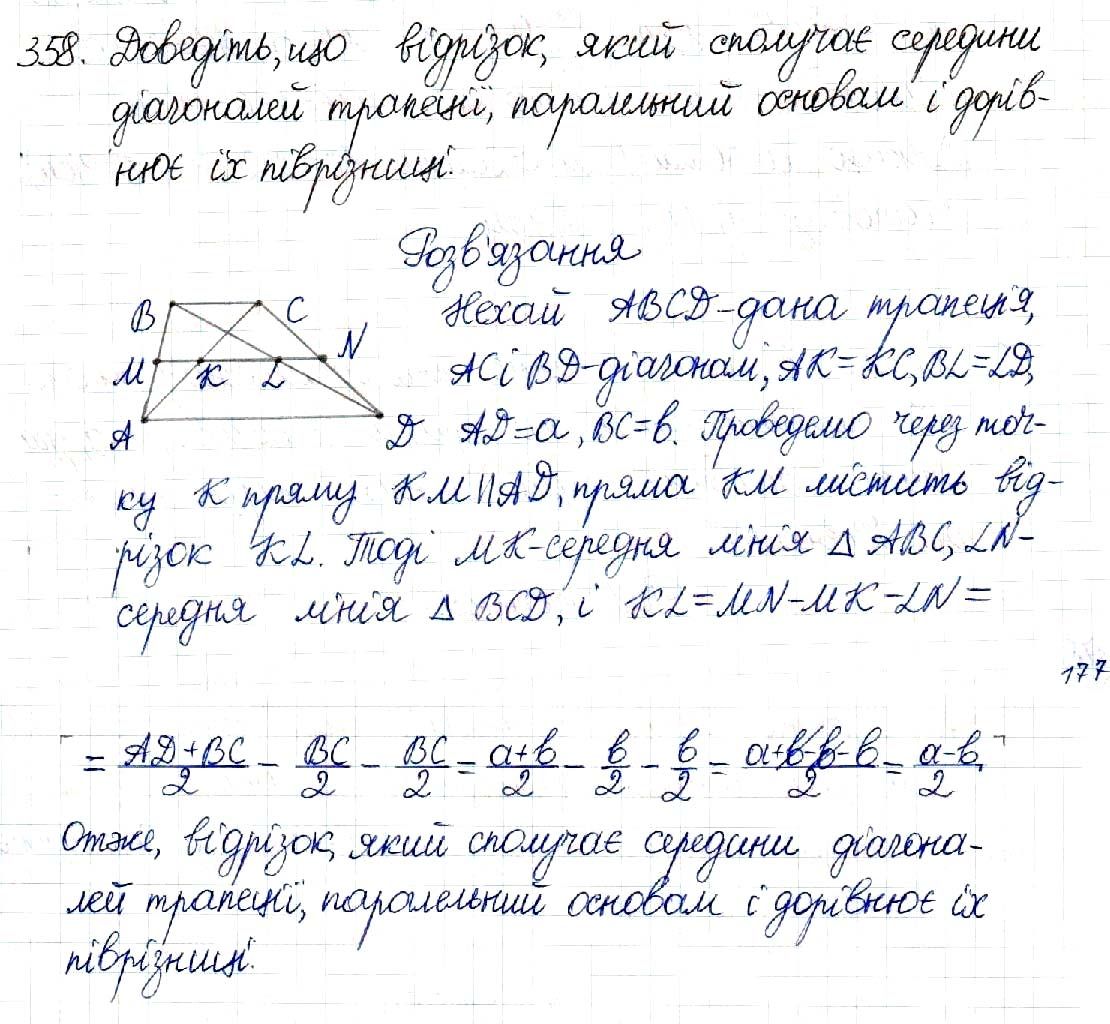 358. Доведіть, що відрізок, який сполучає середини
діагоналей трапеції, паралельний основам і дорів-
нює їх піврізниці.
Розв'язання
B C
M K L N
A D
Нехай ABCD-дана трапеція,
AC і BD-діагоналі, AK=KC, BL=LD,
AD=a, BC=b. Проведемо через точ-
ку K пряму KM||AD, пряма KM містить від-
різок KL. Тоді MK-середня лінія △ ABC, LN-
середня лінія △ BCD, і KL=MN-MK-LN=
177
= (AD+BC)/2 - BC/2 - BC/2 = (a+b)/2 - b/2 - b/2 = (a+b-b-b)/2 = (a-b)/2.
Отже, відрізок, який сполучає середини діагона-
лей трапеції, паралельний основам і дорівнює їх
піврізниці.